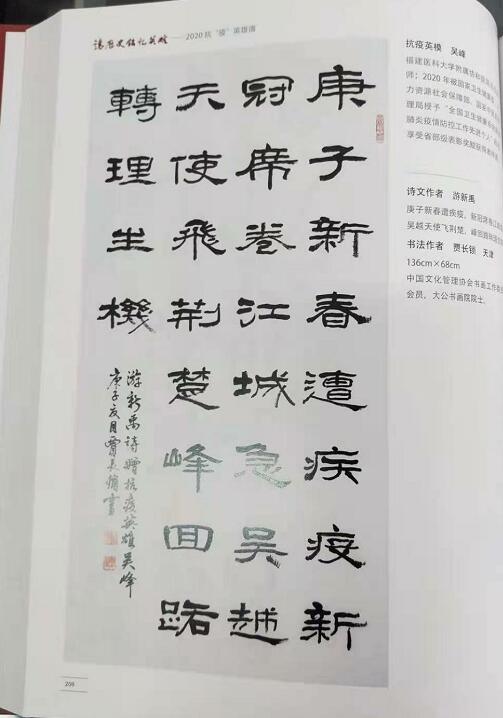 让历史铭记英雄——2020抗“疫”英雄谱
庚子新春遭疾疫新
冠席卷江城急吴越
天使飛荆楚峰回路
轉理生機
游新禹诗赠抗疫英雄吴峰
庚子夏月贾长锁書
抗疫英模 吴峰
福建医科大学附属协和医院
师；2020年被国家卫生健康
力资源社会保障部、国家中医药
理局授予“全国卫生健康
肺炎疫情防控工作先进个人”
享受省部级表彰奖励获得者
诗文作者 游新禹
庚子新春遭疾疫，新冠席卷江城
吴越天使飞荆楚，峰回路转理生
书法作者 贾长锁 天津
136cm×68cm
中国文化管理协会书画工作委
会员，大公书画院院士。
208